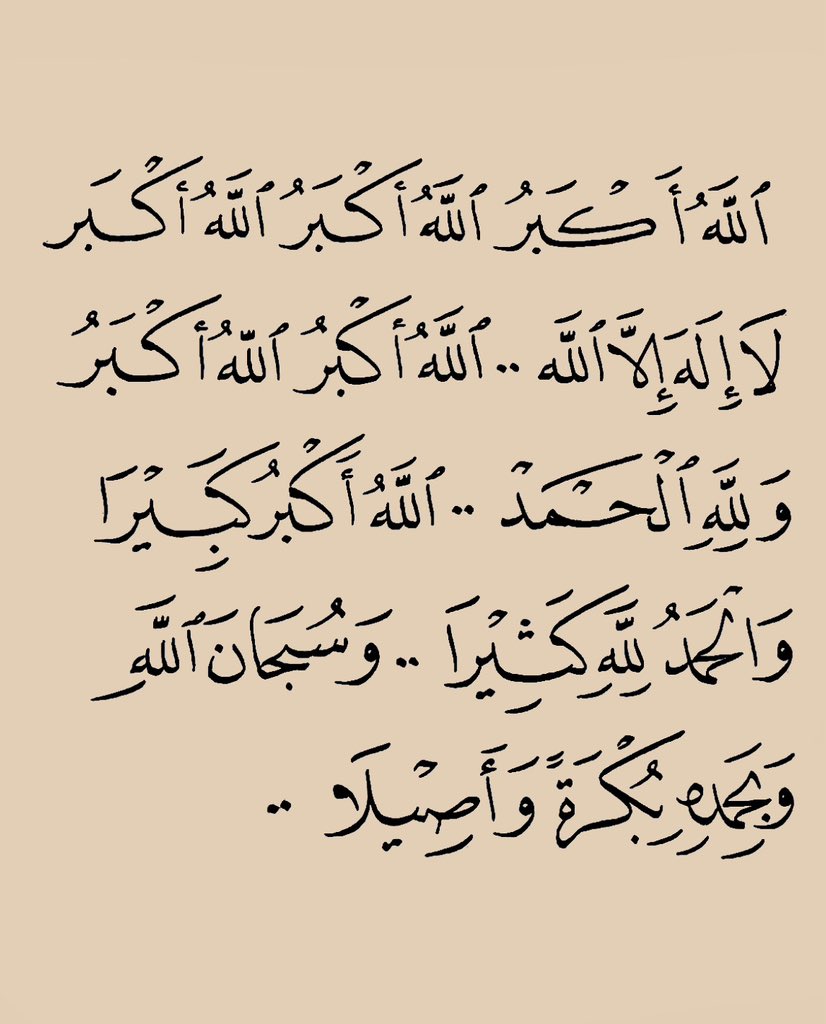 ٱللَّهُ أَكْبَرُ ٱللَّهُ أَكْبَرُ ٱللَّهُ أَكْبَر
لَا إِلَهَ إِلَّا ٱللَّه .. ٱللَّهُ أَكْبَرُ ٱللَّهُ أَكْبَرُ
وَلِلَّهِ ٱلْحَمْدْ .. ٱللَّهُ أَكْبَرُ كَبِيْرَا
وَالْحَمَدُ لِلَّهِ كَثِيْرَا .. وَسُبحَانَ ٱللَّهِ
وَبِحَمدِهِ بُكْرَةً وَأَصِيْلَا ..